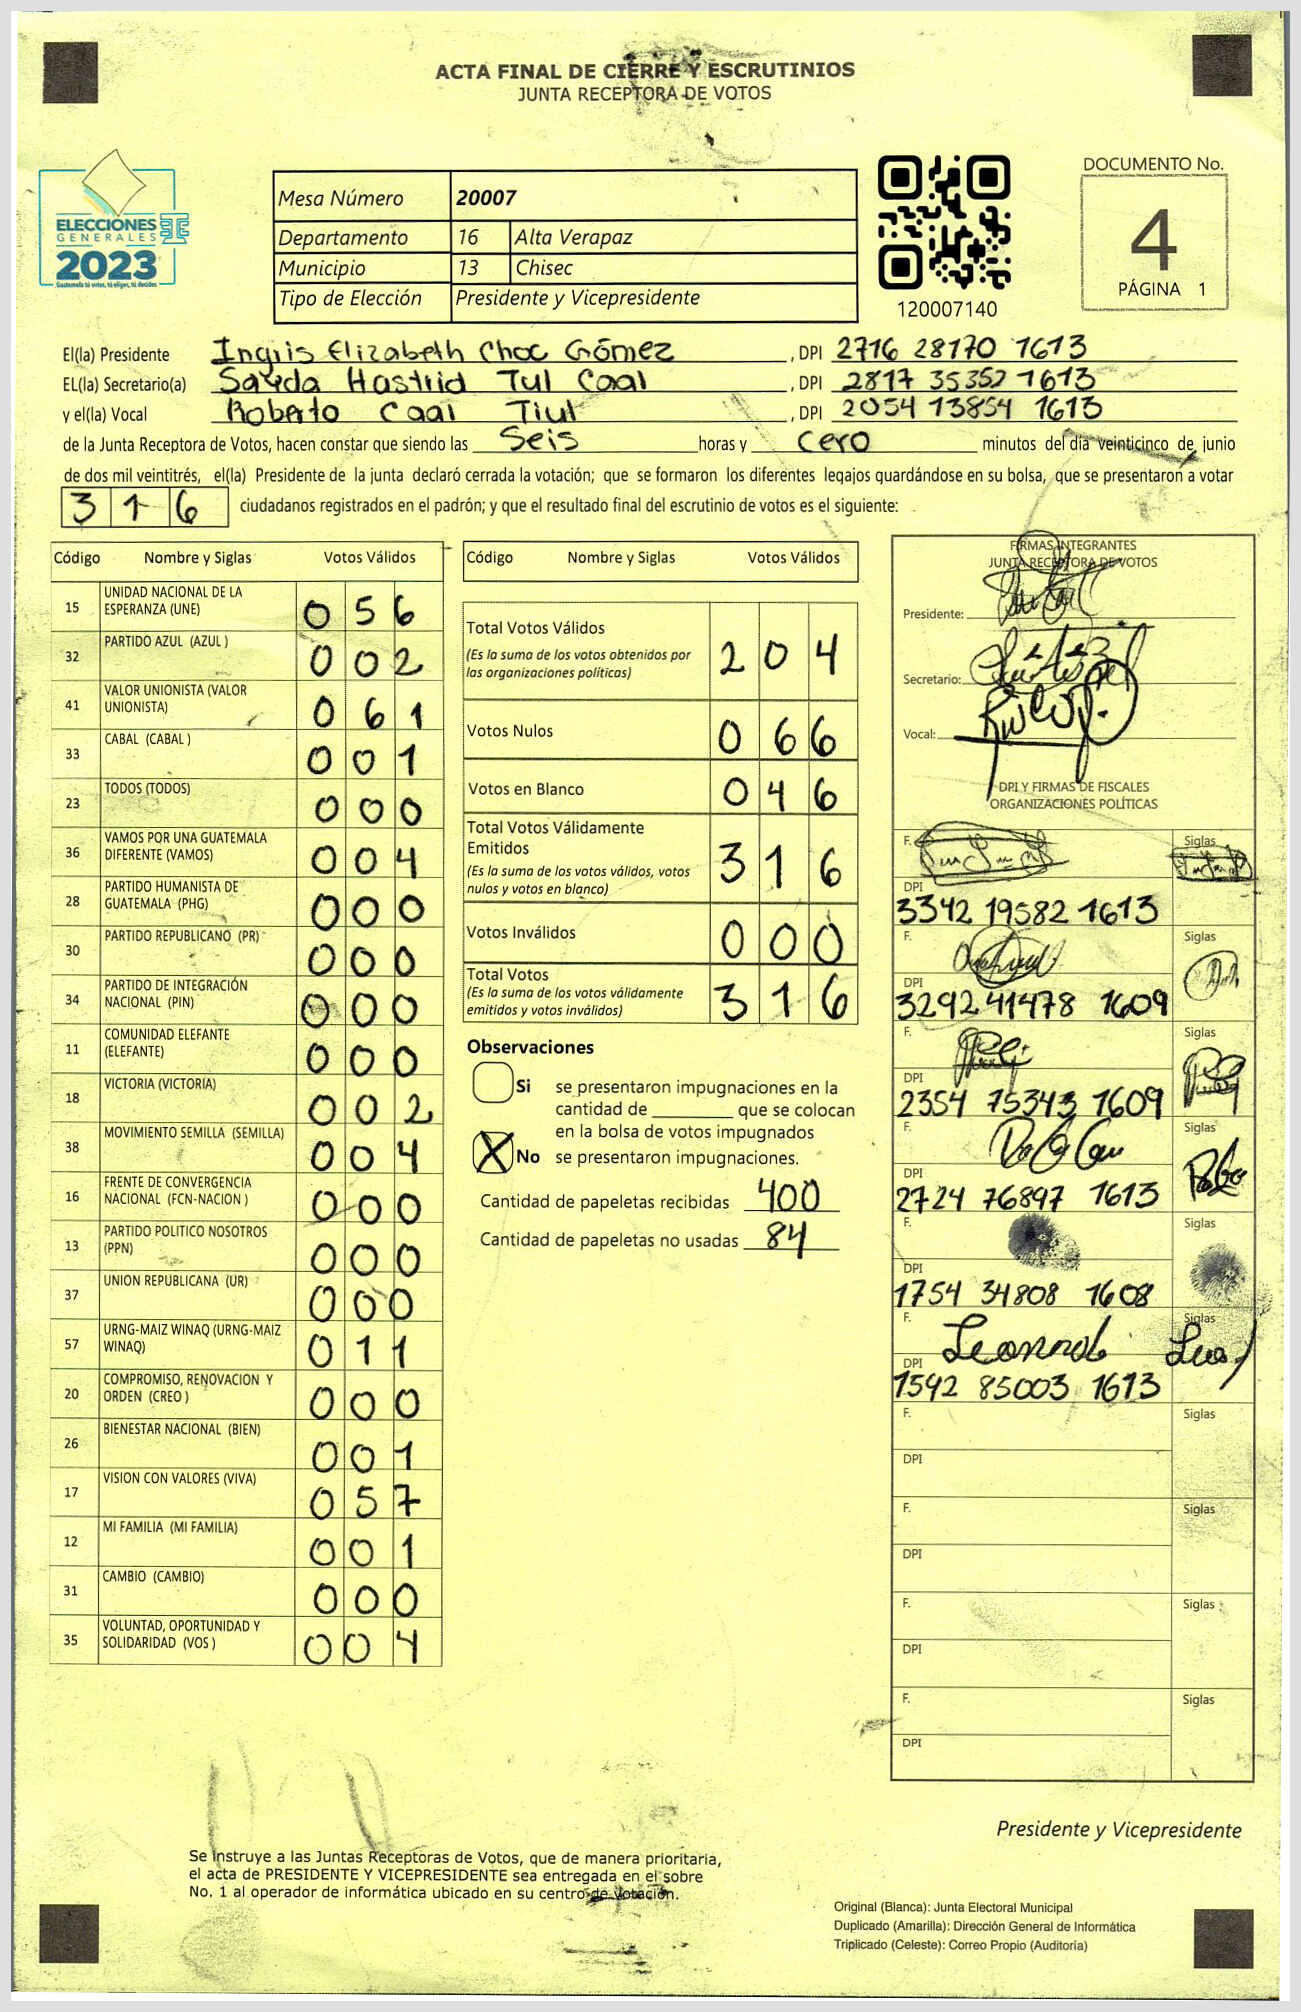 ACTA FINAL DE CIERRE Y ESCRUTINIOS
JUNTA RECEPTORA DE VOTOS
ELECCIONES
GENERALES
2023
Guatemala tú votas, tú eliges, tú decides
Mesa Número 20007
Departamento 16 Alta Verapaz
Municipio 13 Chisec
Tipo de Elección Presidente y Vicepresidente
120007140
DOCUMENTO No.
4
PÁGINA 1
El(la) Presidente Ingris Elizabeth Choc Gómez , DPI 2716 28170 1613
EL(la) Secretario(a) Sayda Hastrid Tul Caal , DPI 2817 35352 1613
y el(la) Vocal Roberto Caal Tiul , DPI 2054 13854 1613
de la Junta Receptora de Votos, hacen constar que siendo las Seis horas y cero minutos del día veinticinco de junio
de dos mil veintitrés, el(la) Presidente de la junta declaró cerrada la votación; que se formaron los diferentes legajos guardándose en su bolsa, que se presentaron a votar
316 ciudadanos registrados en el padrón; y que el resultado final del escrutinio de votos es el siguiente:
Código Nombre y Siglas Votos Válidos
15 UNIDAD NACIONAL DE LA
ESPERANZA (UNE) 056
32 PARTIDO AZUL (AZUL ) 002
41 VALOR UNIONISTA (VALOR
UNIONISTA) 061
33 CABAL (CABAL ) 001
23 TODOS (TODOS) 000
36 VAMOS POR UNA GUATEMALA
DIFERENTE (VAMOS) 004
28 PARTIDO HUMANISTA DE
GUATEMALA (PHG) 000
30 PARTIDO REPUBLICANO (PR) 000
34 PARTIDO DE INTEGRACIÓN
NACIONAL (PIN) 000
11 COMUNIDAD ELEFANTE
(ELEFANTE) 000
18 VICTORIA (VICTORIA) 002
38 MOVIMIENTO SEMILLA (SEMILLA) 004
16 FRENTE DE CONVERGENCIA
NACIONAL (FCN-NACION ) 000
13 PARTIDO POLITICO NOSOTROS
(PPN) 000
37 UNION REPUBLICANA (UR) 000
57 URNG-MAIZ WINAQ (URNG-MAIZ
WINAQ) 011
20 COMPROMISO, RENOVACION Y
ORDEN (CREO ) 000
26 BIENESTAR NACIONAL (BIEN) 001
17 VISION CON VALORES (VIVA) 057
12 MI FAMILIA (MI FAMILIA) 001
31 CAMBIO (CAMBIO) 000
35 VOLUNTAD, OPORTUNIDAD Y
SOLIDARIDAD (VOS ) 004
Código Nombre y Siglas Votos Válidos
Total Votos Válidos
(Es la suma de los votos obtenidos por
las organizaciones políticas) 204
Votos Nulos 066
Votos en Blanco 046
Total Votos Válidamente
Emitidos
(Es la suma de los votos válidos, votos
nulos y votos en blanco) 316
Votos Inválidos 000
Total Votos
(Es la suma de los votos válidamente
emitidos y votos inválidos) 316
Observaciones
Si se presentaron impugnaciones en la
cantidad de ________ que se colocan
en la bolsa de votos impugnados
X No se presentaron impugnaciones.
Cantidad de papeletas recibidas 400
Cantidad de papeletas no usadas 84
FIRMAS INTEGRANTES
JUNTA RECEPTORA DE VOTOS
Presidente:
Secretario:
Vocal:
DPI Y FIRMAS DE FISCALES
ORGANIZACIONES POLÍTICAS
F. Siglas
DPI
3342 19582 1613
F. Siglas
DPI
3292 41478 1609
F. Siglas
DPI
2354 75343 1609
F. Siglas
DPI
2724 76897 1613
F. Siglas
DPI
1754 34808 1608
F. Siglas
DPI
1542 85003 1613
F. Siglas
DPI
F. Siglas
DPI
F. Siglas
DPI
F. Siglas
DPI
Presidente y Vicepresidente
Se instruye a las Juntas Receptoras de Votos, que de manera prioritaria,
el acta de PRESIDENTE Y VICEPRESIDENTE sea entregada en el sobre
No. 1 al operador de informática ubicado en su centro de votación.
Original (Blanca): Junta Electoral Municipal
Duplicado (Amarilla): Dirección General de Informática
Triplicado (Celeste): Correo Propio (Auditoría)